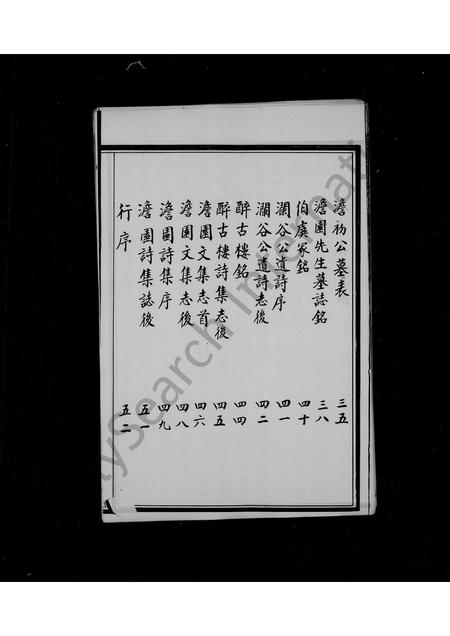 澹初公墓表 三五
澹園先生墓誌銘 三八
伯虞冢銘 四十
瀾谷公遺詩序 四一
瀾谷公遺詩志後 四二
醉古樓銘 四四
醉古樓詩集志後 四五
澹園文集志首 四六
澹園文集志後 四八
澹園詩集序 四九
澹園詩集誌後 五一
行序 五二
ySearch Internati